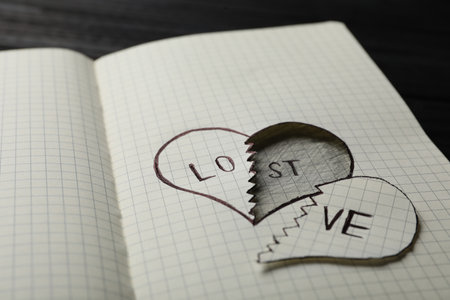 LOST
VE